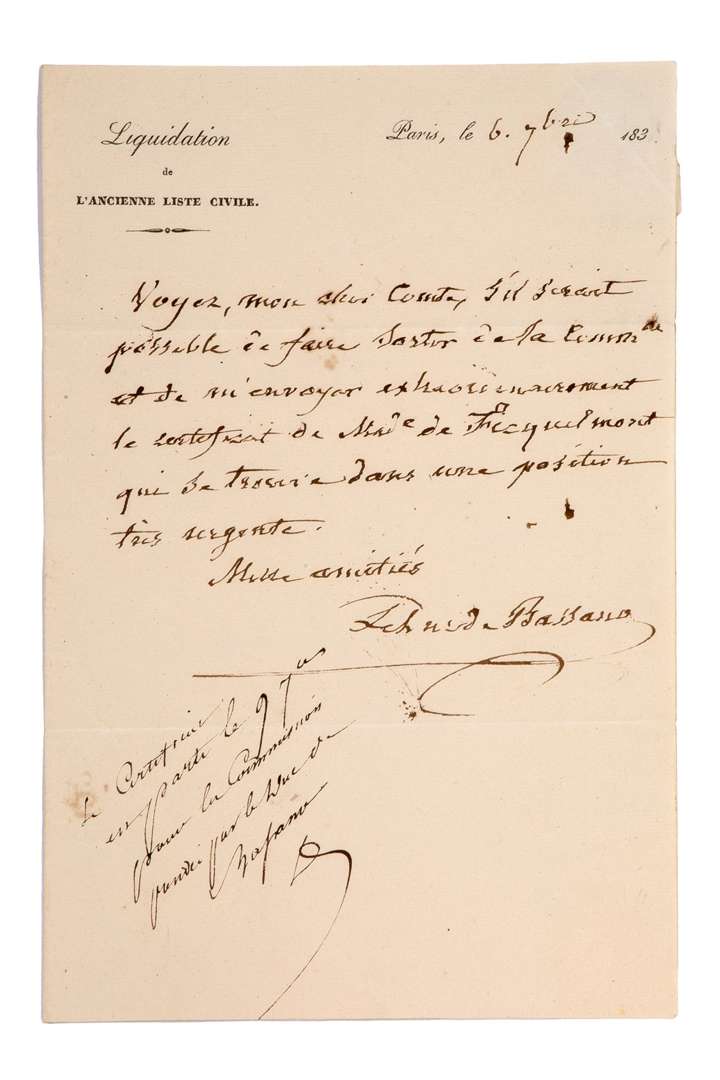 Liquidation
de
L'ANCIENNE LISTE CIVILE.
Paris, le 6. 7bre 183
Voyez, mon cher Comte, s'il seroit
possible de faire sortir de la Common
et de m'envoyer extraordinairement
le certificat de Made de Ficquelmont
qui se trouve dans une position
très urgente.
Mille amitiés
Le duc de Bassano
le Certificat
est parti le 9 7bre
pour la Commission
par le Duc de
Bassano